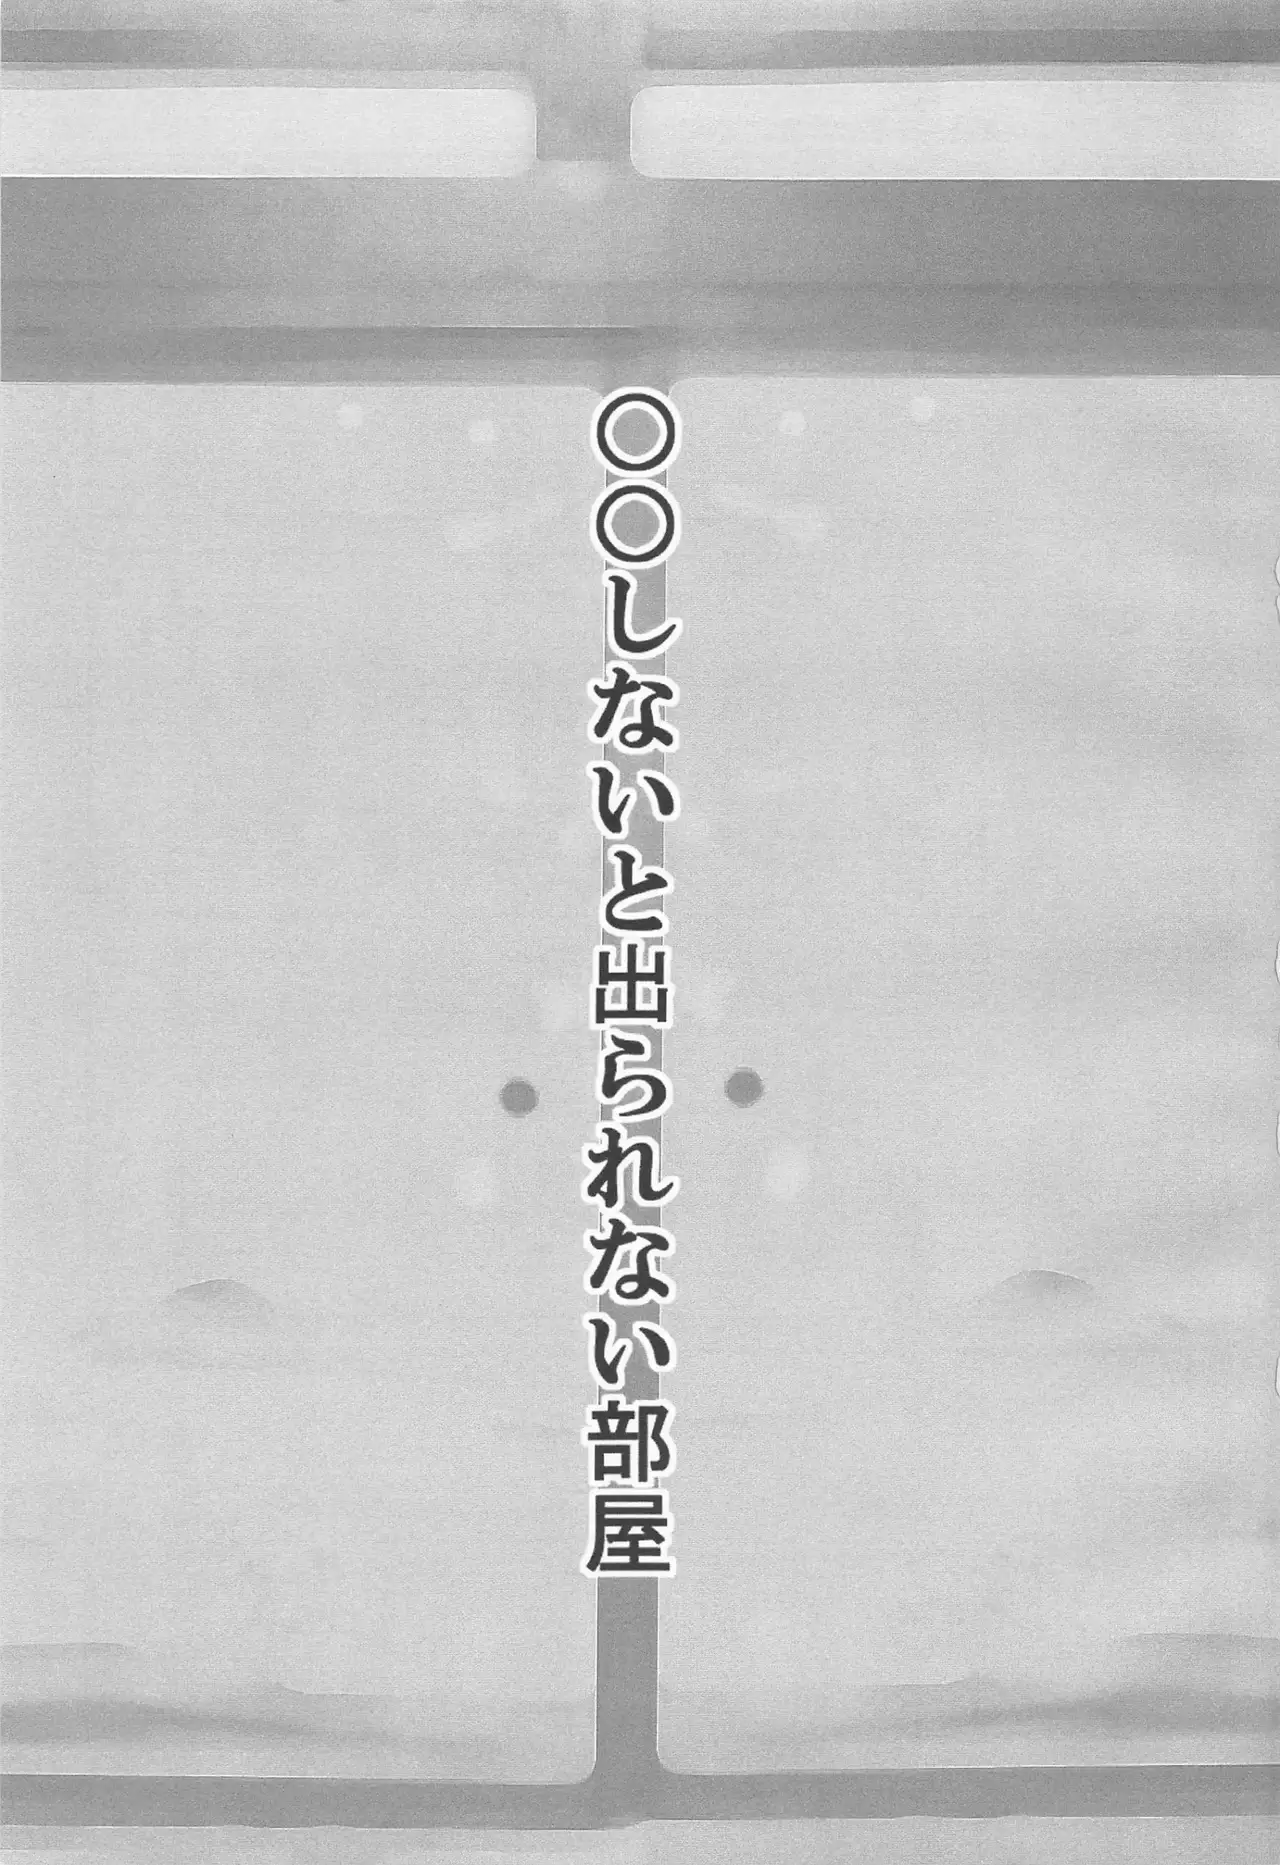 ○○しないと出られない部屋